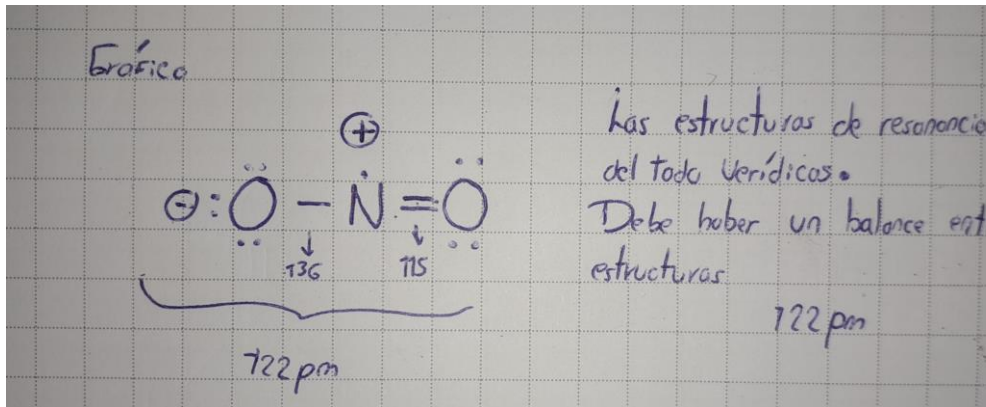 Gráfica
⊕
⊖ :Ö – N = Ö
136 115
122 pm
Las estructuras de resonancia
del todo verídicas.
Debe haber un balance ent
estructuras
122 pm